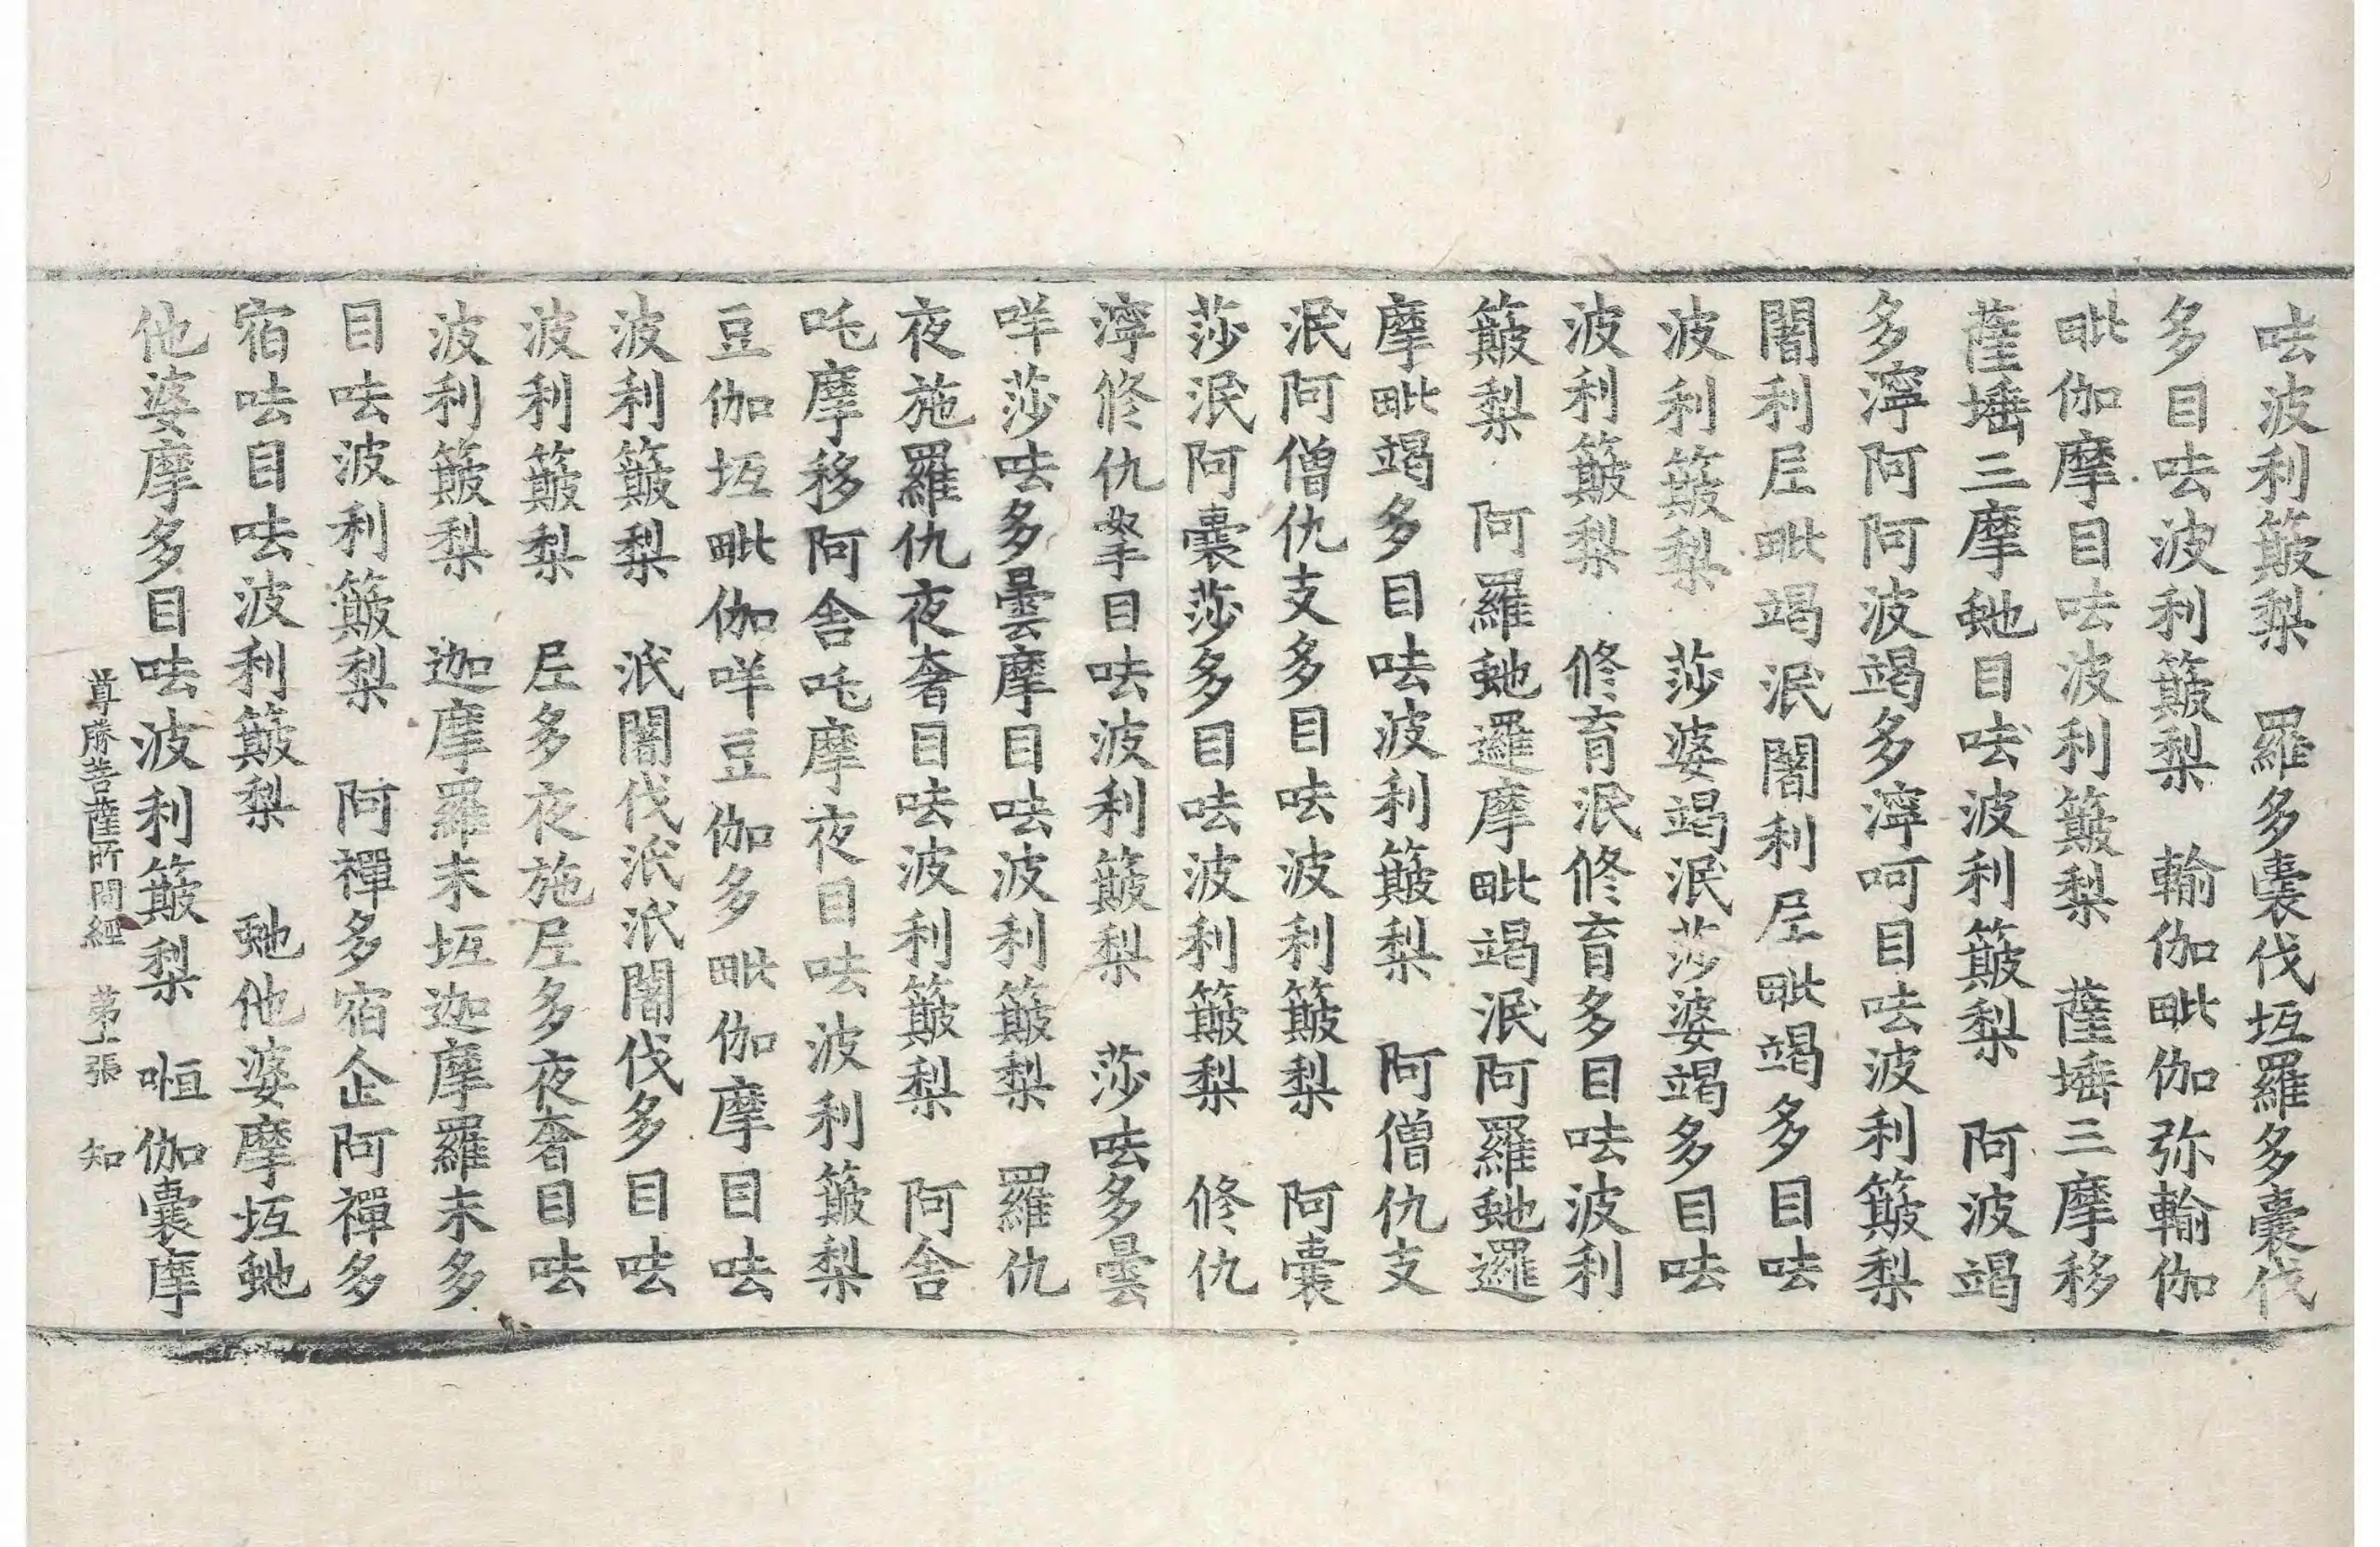 呿波利簸梨　羅多囊伐坘羅多囊伐
多目呿波利簸梨　輸伽毗伽弥輸伽
毗伽摩目呿波利簸梨　薩埵三摩移
薩埵三摩虵目呿波利簸梨　阿波竭
多濘阿阿波竭多濘呵目呿波利簸梨
闍利𡰱毗竭泯闍利𡰱毗竭多目呿
波利簸梨　莎婆竭泯莎婆竭多目呿
波利簸梨　修育泯修育多目呿波利
簸梨　阿羅虵邏摩毗竭泯阿羅虵邏
摩毗竭多目呿波利簸梨　阿僧仇支
泯阿僧仇支多目呿波利簸梨　阿囊
莎泯阿囊莎多目呿波利簸梨　修仇
濘修仇拏目呿波利簸梨　莎呿多曇
咩莎呿多曇摩目呿波利簸梨　羅仇
夜施羅仇夜奢目呿波利簸梨　阿舍
吒摩移阿舍吒摩夜目呿波利簸梨
豆伽坘毗伽咩豆伽多毗伽摩目呿
波利簸梨　泯闍伐泯泯闍伐多目呿
波利簸梨　𡰱多夜施𡰱多夜奢目呿
波利簸梨　迦摩羅末坘迦摩羅末多
目呿波利簸梨　阿禪多宿企阿禪多
宿呿目呿波利簸梨　虵他婆摩坘虵
他婆摩多目呿波利簸梨　咺伽囊摩
尊勝菩薩所問經　苐七張　知